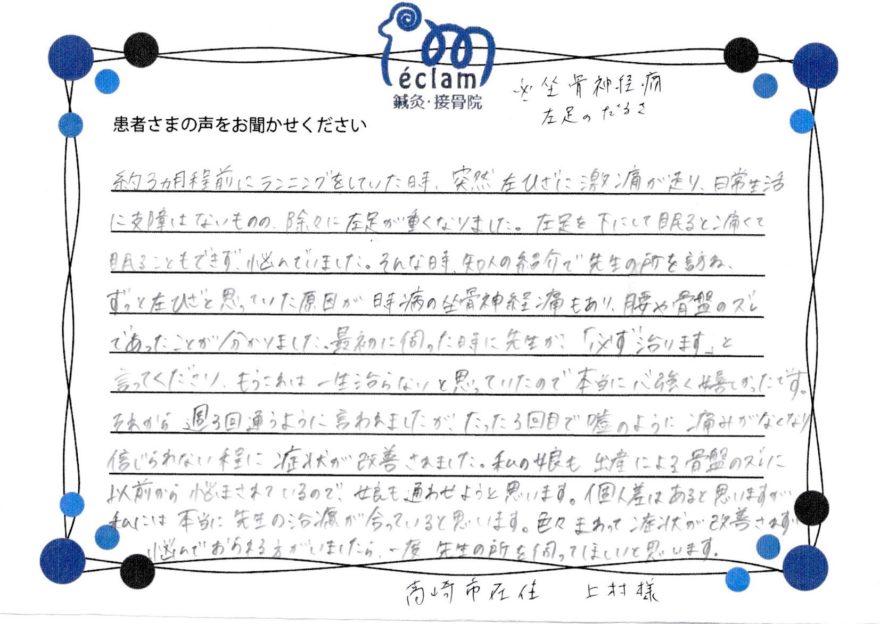 éclam
鍼灸・接骨院
坐骨神経痛
左足のだるさ
患者さまの声をお聞かせください
約3ヵ月程前にランニングをしていた時、突然左ひざに激痛が走り、日常生活
に支障はないものの、除々に左足が重くなりました。左足を下にして眠ると痛くて
眠ることもできず、悩んでいました。そんな時、知人の紹介で先生の所を訪ね、
ずっと左ひざと思っていた原因が持病の坐骨神経痛もあり、腰や骨盤のズレ
であったことが分かりました。最初に伺った時に先生が、「必ず治ります」と
言ってくださり、もうこれは一生治らないと思っていたので本当に心強く嬉しかったです。
それから週3回通うように言われましたが、たった3回目で嘘のように痛みがなくなり
信じられない程に症状が改善されました。私の娘も出産による骨盤のズレに
以前から悩まされているので、娘も通わせようと思います。個人差はあると思いますが
私には本当に先生の治療が合っていると思います。色々まわって症状が改善されず
悩んでおられる方がいましたら、一度先生の所を伺ってほしいと思います。
高崎市在住 上村様